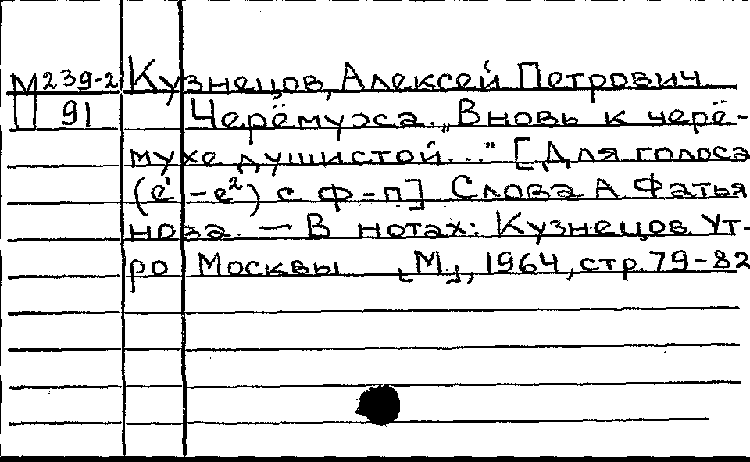 М239-2 Кузнецов, Алексей Петрович
П 91 Черёмуха. „Вновь к черё-
мухе душистой..." [Для голоса
(e¹-e²) с ф-п.] Слова А. Фатья
нова. — В нотах: Кузнецов. Ут-
ро Москвы [М], 1964, стр. 79-82